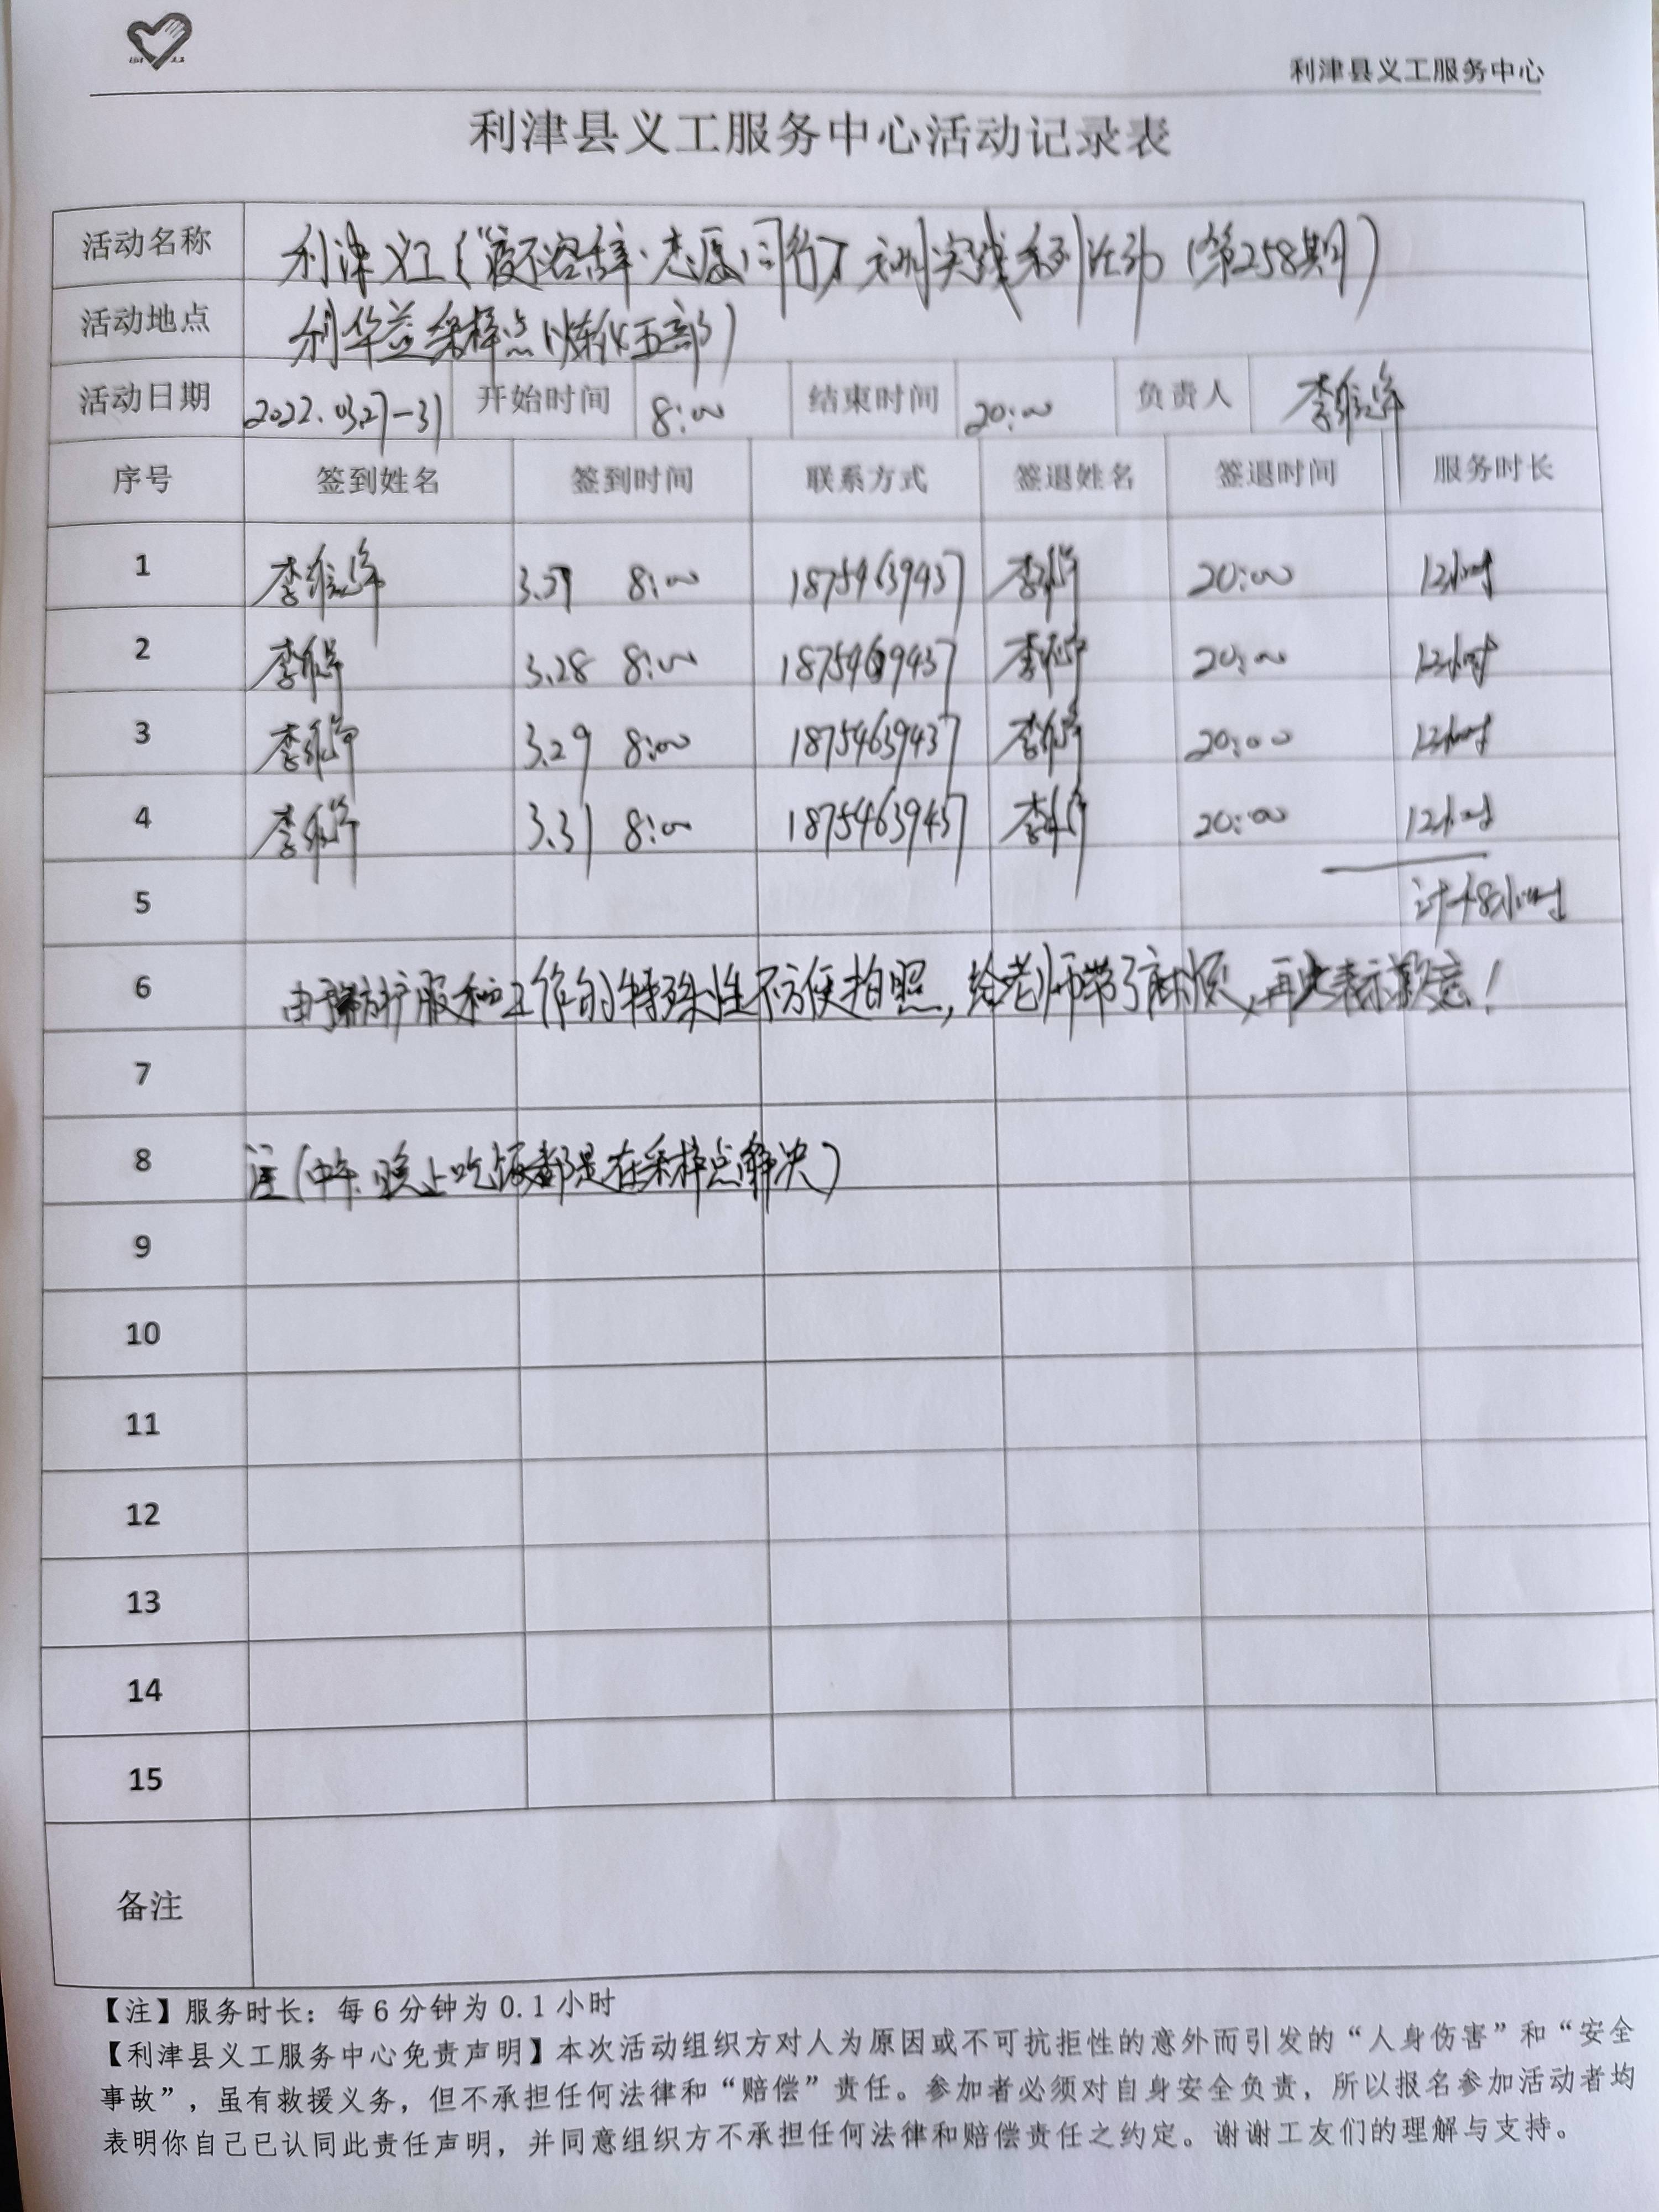 利津县义工服务中心
利津县义工服务中心活动记录表
活动名称 利津义工《“疫不容辞·志愿同行》实践系列活动(第258期)
活动地点 利华益采样点(炼化五部)
活动日期 2022.03.27-31 开始时间 8:00 结束时间 20:00 负责人 李
序号 签到姓名 签到时间 联系方式 签退姓名 签退时间 服务时长
1 李 3.27 8:00 18754639437 李 20:00 12小时
2 李 3.28 8:00 李 20:00 12小时
3 李 3.29 8:00 18754639437 李 20:00 12小时
4 李 3.31 8:00 18754639437 李 20:00 12小时
5 计48小时
6 由于防护服和工作的特殊性不方便拍照,给老师带了麻烦,再此表示歉意!
7
8 注(中午.晚上吃饭都是在采样点解决)
9
10
11
12
13
14
15
备注
【注】服务时长：每6分钟为0.1小时
【利津县义工服务中心免责声明】本次活动组织方对人为原因或不可抗拒性的意外而引发的“人身伤害”和“安全
事故”，虽有救援义务，但不承担任何法律和“赔偿”责任。参加者必须对自身安全负责，所以报名参加活动者均
表明你自己已认同此责任声明，并同意组织方不承担任何法律和赔偿责任之约定。谢谢工友们的理解与支持。